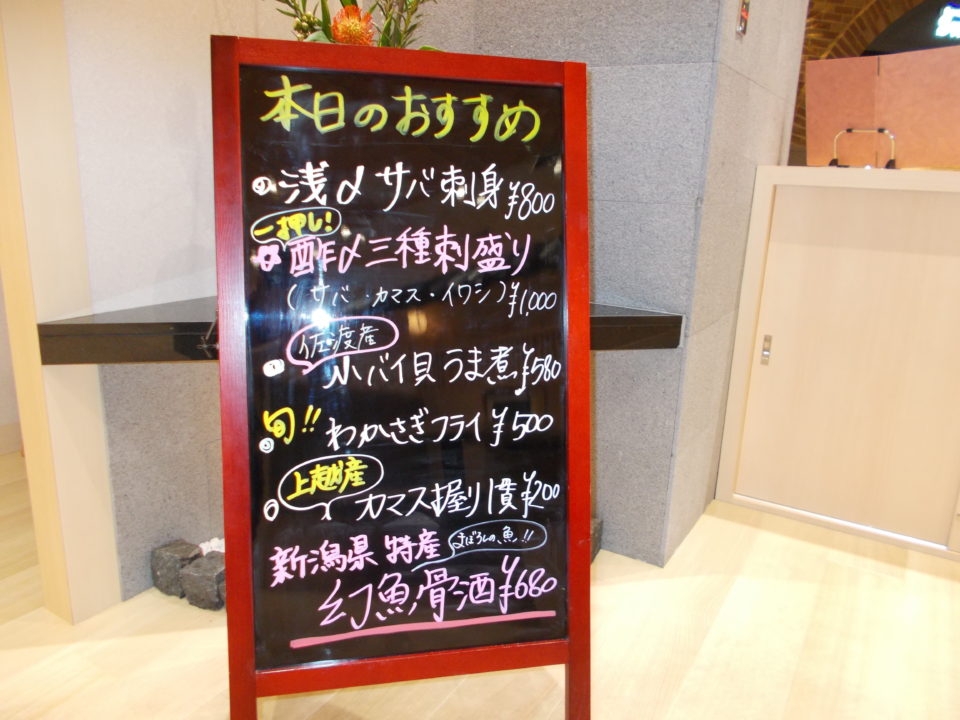 本日のおすすめ
浅〆サバ刺身 ¥800
一押し!
酢〆三種刺盛り
(サバ・カマス・イワシ) ¥1,000
佐渡産
小バイ貝うま煮 ¥580
旬!! わかさぎフライ ¥500
上越産
カマス握り1貫 ¥200
新潟県特産 まぼろしの魚!!
幻魚骨酒 ¥680